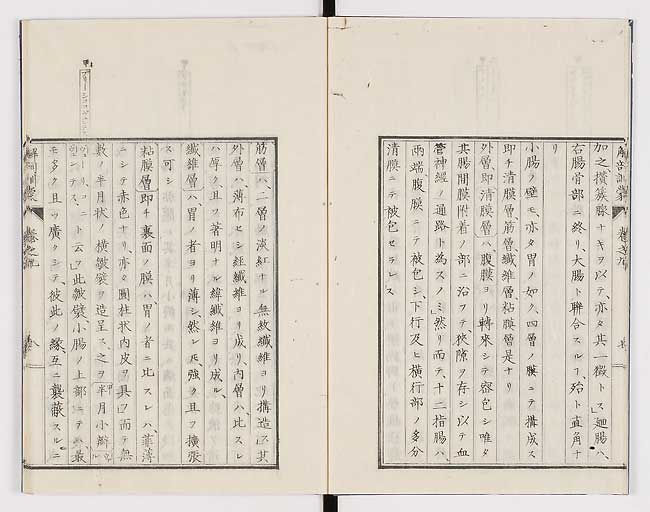 加之攅簇腺ナキヲ以テ、亦タ其一徴トス」廻腸ハ、
右腸骨部ニ終リ、大腸ト聯合スルフ、殆ト直角ナ
リ
小腸ノ壁モ、亦タ胃ノ如ク、四層ノ膜ニテ構成ス
即チ清膜層筋層纖維層、粘膜層是ナリ
外層、即清膜層ハ、腹膜ヨリ轉來シテ密包シ唯タ
其腸間膜附着ノ部ニ沿フテ、狹隙ヲ存シ以テ血
管神經ノ通路ト為スノミ」然リ而テ、十二指腸ハ、
兩端腹膜ニテ被包シ、下行及ヒ横行部ノ多分
清膜ニテ被包セラレス
筋層ハ、二層ノ淡紅ナル無紋纖維ヨリ構造ス」其
外層ハ、薄布セシ經纖維ヨリ成リ、内層ハ、比スレ
ハ厚ク、且フ著明ナル緯纖維ヨリ成ル、
纖維層ハ、胃ノ者ヨリ薄シ、然レ𪜈、強ク且フ擴張
ス可シ
粘膜層、即チ裏面ノ膜ハ、胃ノ者ニ比スレハ、菲薄
ニシテ赤色ナリ、亦タ圓柱狀内皮ヲ具フ」而テ無
數ノ半月狀ノ横皺襞ヲ造呈ス、之ヲ半月小瓣
ト云フ」此皺襞、小腸ノ上部ニテハ、最
モ多ク且ツ廣クシテ、彼此ノ緣、互ニ襲蔽スルニ